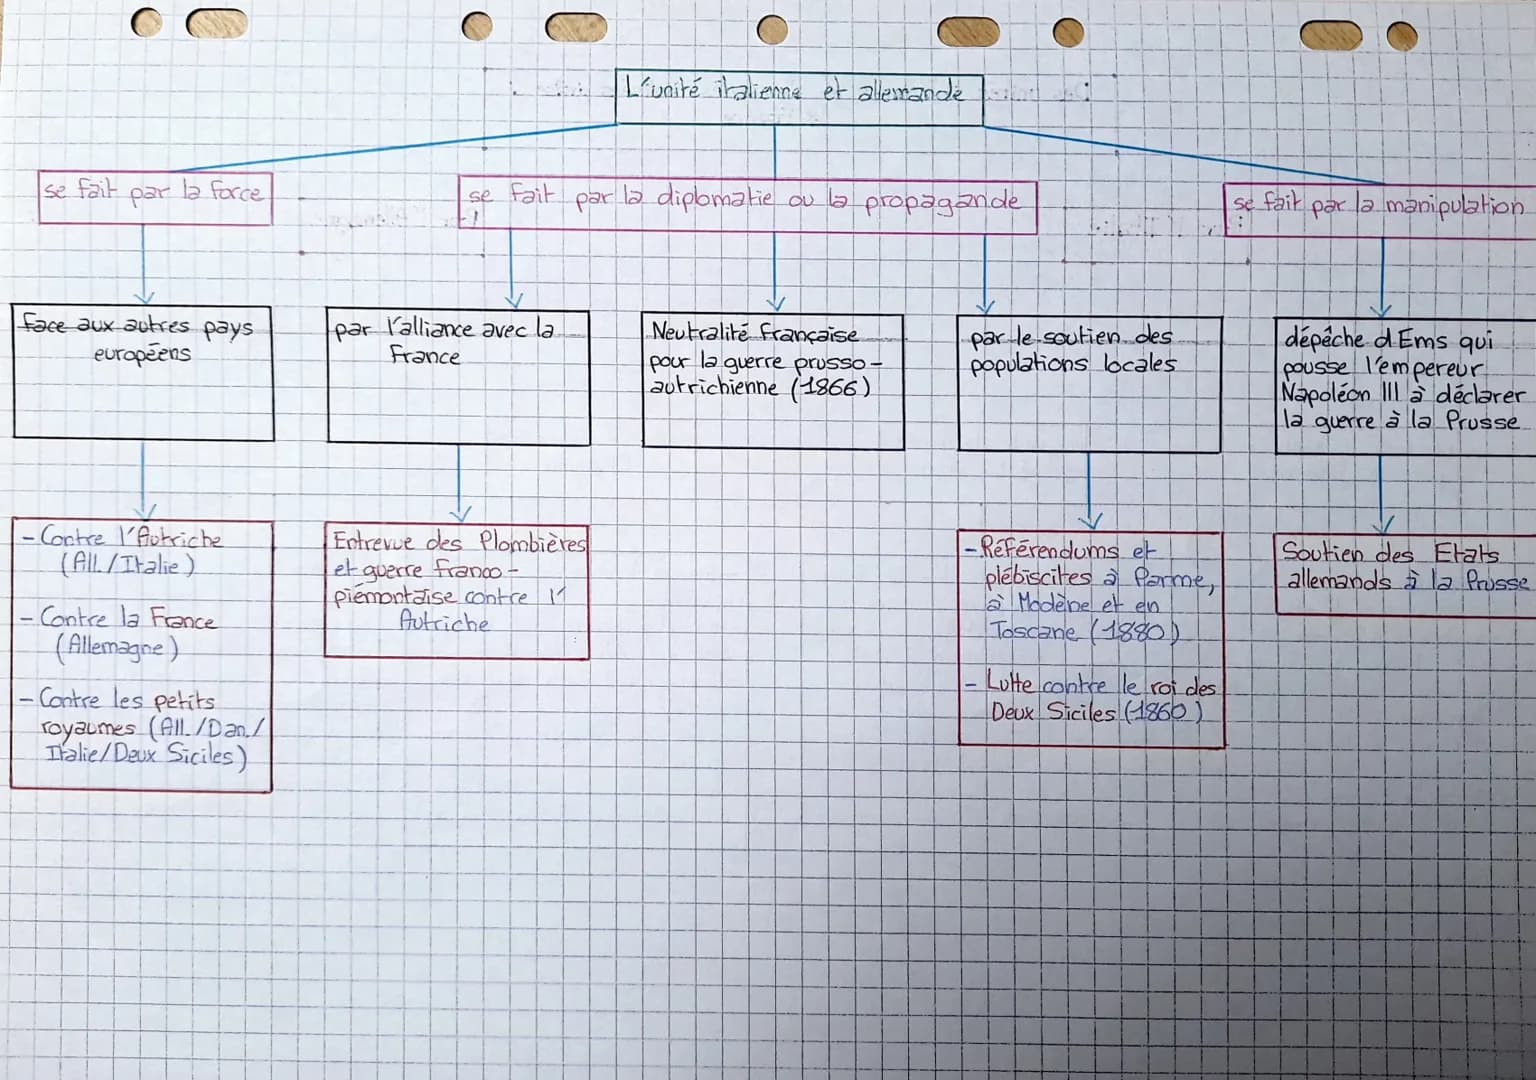 L'unité italienne et allemande
se fait par la force
se fait par la diplomatie ou la propagande
se fait par la manipulation
face aux autres pays
européens
par l'alliance avec la
France
Neutralité française
pour la guerre prusso-
autrichienne (1866)
par le soutien des
populations locales
dépêche d'Ems qui
pousse l'empereur
Napoléon III à déclarer
la guerre à la Prusse
- Contre l'Autriche
(All. / Italie)
- Contre la France
(Allemagne)
- Contre les petits
royaumes (All. / Dan. /
Italie / Deux Siciles)
Entrevue des Plombières
et guerre franco-
piémontaise contre l'
Autriche
- Référendums et
plébiscites à Parme,
à Modène et en
Toscane (1880)
- Lutte contre le roi des
Deux Siciles (1860)
Soutien des Etats
allemands à la Prusse